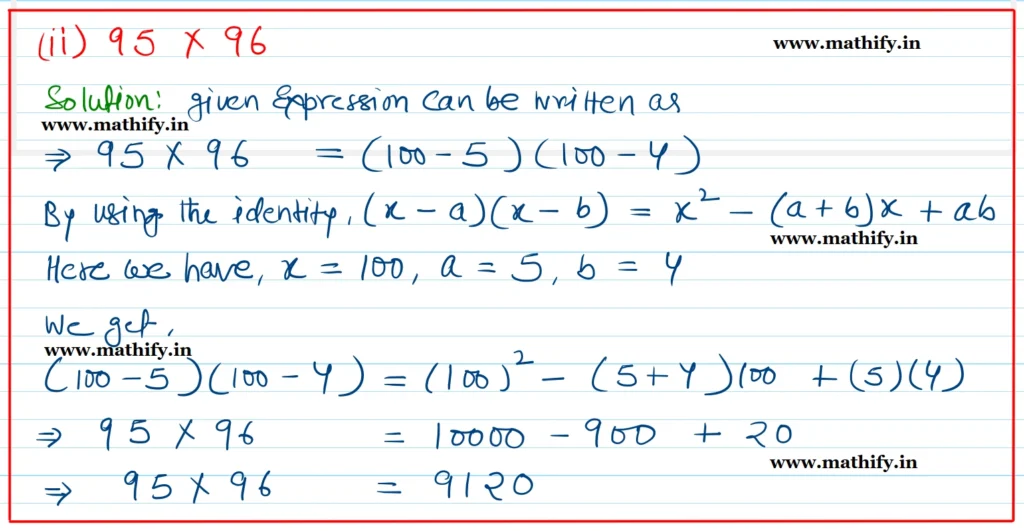 (ii) 95 × 96
www.mathify.in
Solution: given Expression can be written as
www.mathify.in
⇒ 95 × 96 = (100 - 5) (100 - 4)
By using the identity, (x - a)(x - b) = x² - (a + b)x + ab
www.mathify.in
Here we have, x = 100, a = 5, b = 4
We get,
www.mathify.in
(100 - 5)(100 - 4) = (100)² - (5 + 4)100 + (5)(4)
⇒ 95 × 96 = 10000 - 900 + 20
www.mathify.in
⇒ 95 × 96 = 9120